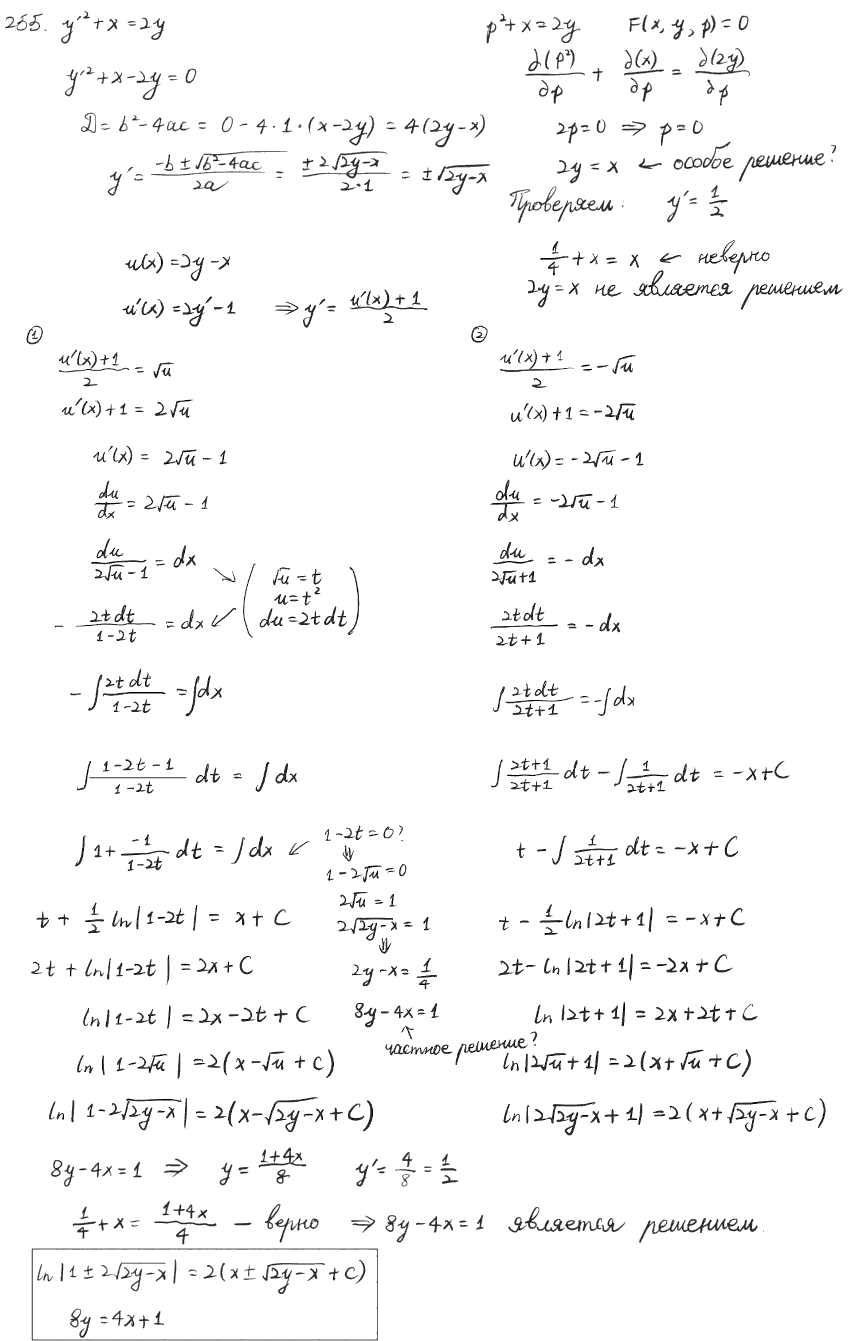 255. y'² + x = 2y
y'² + x - 2y = 0
D = b² - 4ac = 0 - 4·1·(x - 2y) = 4(2y - x)
y' = (-b ± √(b² - 4ac))/2a = (± 2√(2y - x))/(2·1) = ± √(2y - x)
p² + x = 2y F(x, y, p) = 0
∂(p²)/∂p + ∂(x)/∂p = ∂(2y)/∂p
2p = 0 ⇒ p = 0
2y = x ← особое решение?
Проверяем: y' = 1/2
1/4 + x = x ← неверно
2y = x не является решением
u(x) = 2y - x
u'(x) = 2y' - 1 ⇒ y' = (u'(x) + 1)/2
①
(u'(x) + 1)/2 = √u
u'(x) + 1 = 2√u
u'(x) = 2√u - 1
du/dx = 2√u - 1
du/(2√u - 1) = dx ↘
(√u = t
u = t²
du = 2t dt)
- 2t dt/(1 - 2t) = dx ↙
- ∫ 2t dt/(1 - 2t) = ∫ dx
∫ (1 - 2t - 1)/(1 - 2t) dt = ∫ dx
∫ 1 + -1/(1 - 2t) dt = ∫ dx ↙
1 - 2t = 0?
⇓
1 - 2√u = 0
2√u = 1
2√(2y - x) = 1
⇓
2y - x = 1/4
8y - 4x = 1
↑
частное решение?
t + 1/2 ln|1 - 2t| = x + C
2t + ln|1 - 2t| = 2x + C
ln|1 - 2t| = 2x - 2t + C
ln|1 - 2√u| = 2(x - √u + C)
ln|1 - 2√(2y - x)| = 2(x - √(2y - x) + C)
②
(u'(x) + 1)/2 = -√u
u'(x) + 1 = -2√u
u'(x) = -2√u - 1
du/dx = -2√u - 1
du/(2√u + 1) = - dx
2t dt/(2t + 1) = - dx
∫ 2t dt/(2t + 1) = - ∫ dx
∫ (2t + 1)/(2t + 1) dt - ∫ 1/(2t + 1) dt = -x + C
t - ∫ 1/(2t + 1) dt = -x + C
t - 1/2 ln|2t + 1| = -x + C
2t - ln|2t + 1| = -2x + C
ln|2t + 1| = 2x + 2t + C
ln|2√u + 1| = 2(x + √u + C)
ln|2√(2y - x) + 1| = 2(x + √(2y - x) + C)
8y - 4x = 1 ⇒ y = (1 + 4x)/8 y' = 4/8 = 1/2
1/4 + x = (1 + 4x)/4 – верно ⇒ 8y - 4x = 1 является решением.
ln|1 ± 2√(2y - x)| = 2(x ± √(2y - x) + C)
8y = 4x + 1